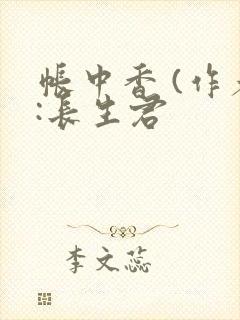 帐中香(作者
:长生君
李文蕊